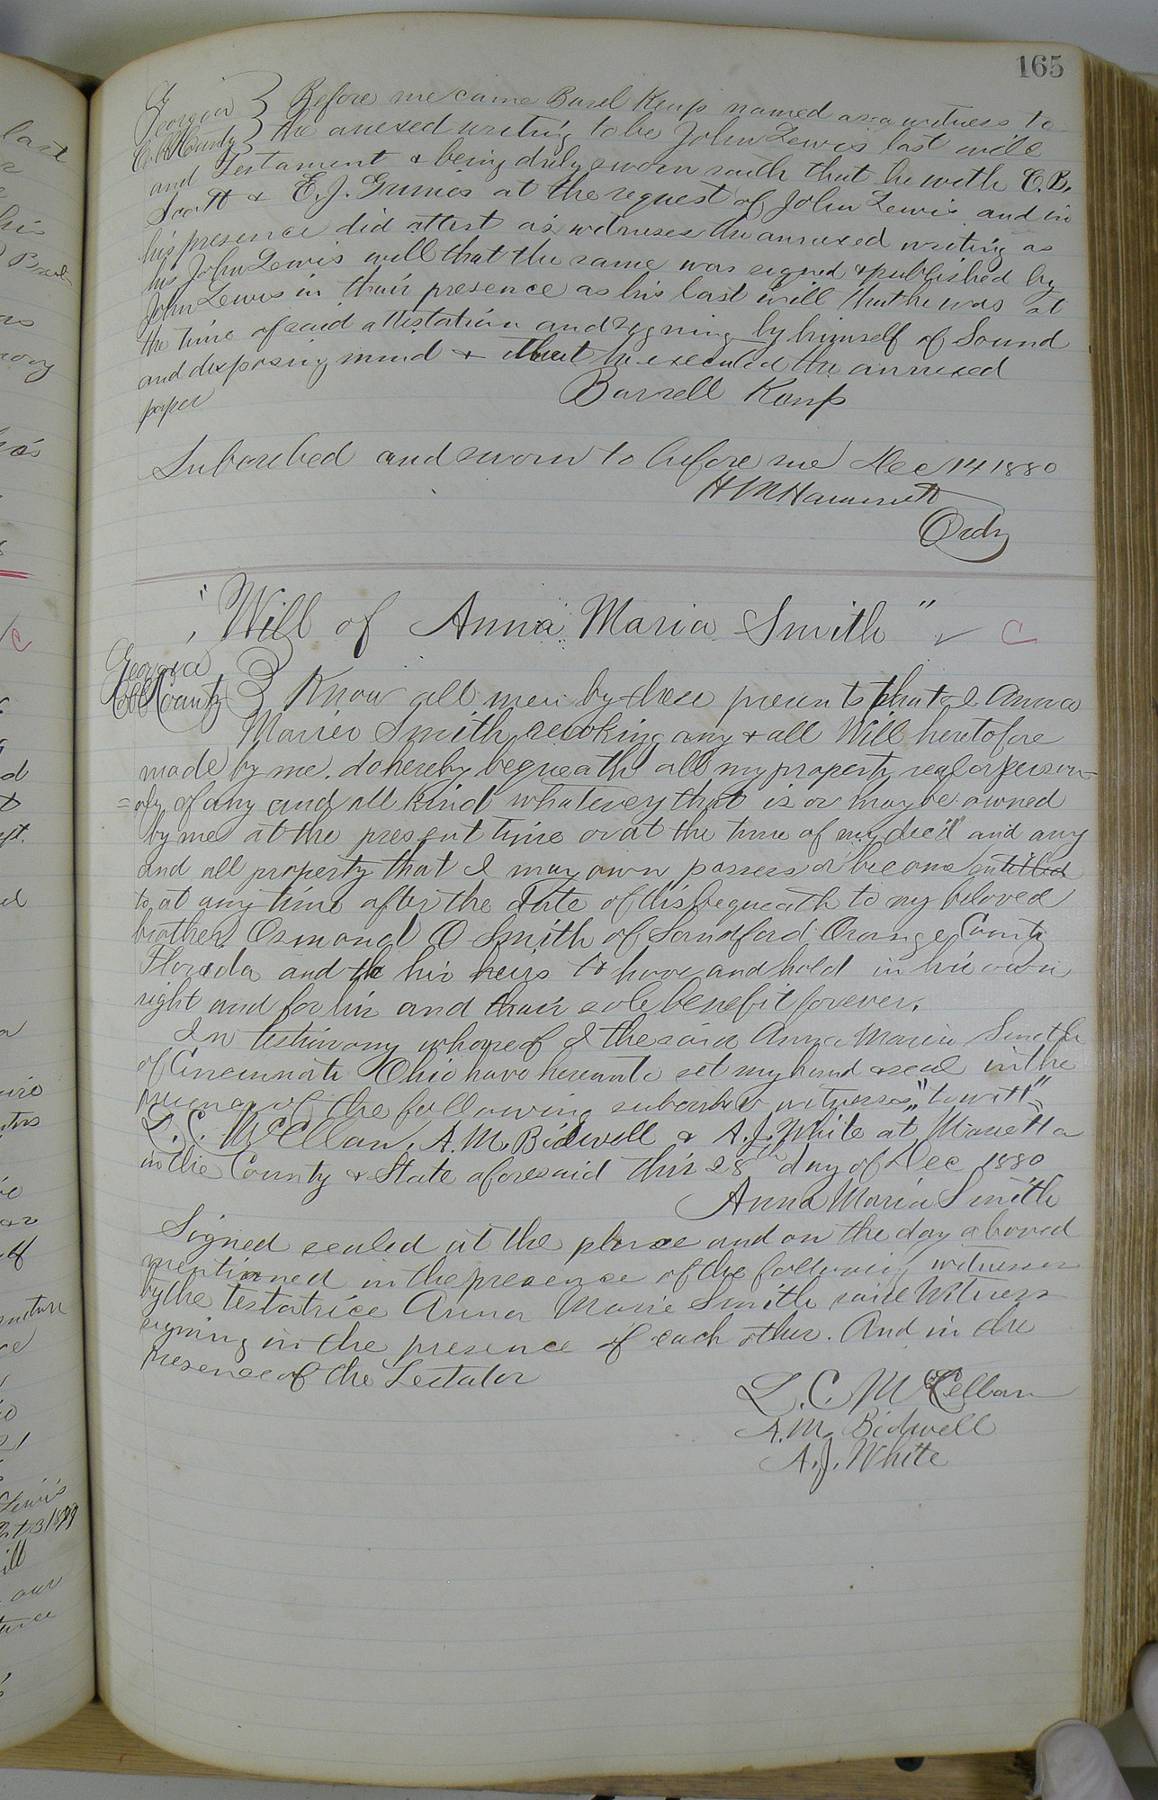 165
Georgia } Before me came Basel Kemp named as a witness to
Cobb County } the anexed writing to be John Lewis last will
and Testament & being duly sworn saith that he with C. B.
Scott & E. J. at the request of John Lewis and in
his presence did attest as witnesses the annexed writing as
his John Lewis will that the same was signed & published by
John Lewis in their presence as his last will that he was at
the time of said attestation and signing by himself of Sound
and disposing mind & that he executed the annexed
paper Barrell Kemp
Subscribed and sworn to before me Dec 14 1880
H M Hammett
Ordy
"Will of Anna Maria Smith" C
Georgia
Cobb County } Know all men by these presents that I Anna
Maria Smith, revoking any & all Will heretofore
made by me. do hereby bequeath all my property real or person-
=aly of any and all kind whatever that is or may be owned
by me at the present time or at the time of my and any
and all property that I may own possess or become entitled
to, at any time after the date of this bequeath to my beloved
brother, Osmond O Smith of Sandford Orange County
Florada and to his heirs to have and hold in his own
right and for his and their sole benefit forever.
In testimony whereof I the said Anna Maria Smith
of Cincinnati Ohio have hereunto set my hand & seal in the
presence of the following witnesses, "towitt"
L. C. McCllan, A. M. Bidwell & A. J. White at Marietta
in the County & State aforesaid this 28th day of Dec 1880
Anna Maria Smith
Signed sealed at the place and on the day aboved
mentioned in the presence of the following witnesses
by the testatrice Anna Marie Smith said Witness
signing in the presence of each other. And in the
presence of the Testator
L. C. McCellan
A. M. Bidwell
A. J. White